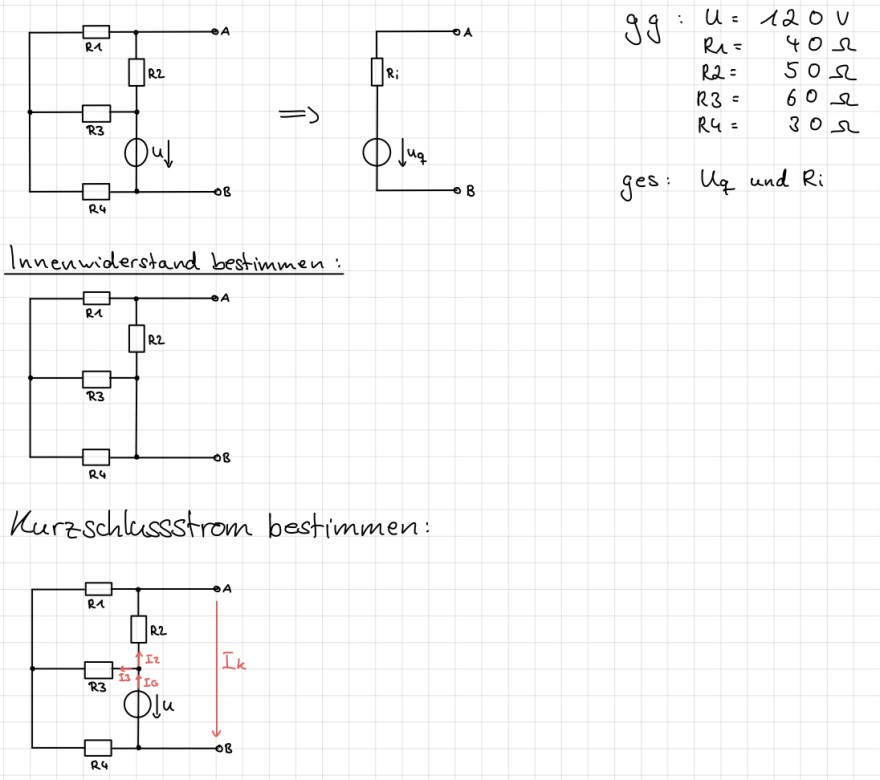 gg: U = 120 V
R1 = 40 Ω
R2 = 50 Ω
R3 = 60 Ω
R4 = 30 Ω
ges: Uq und Ri
R1
A
R2
R3
U
R4
B
=>
A
Ri
Uq
B
Innenwiderstand bestimmen:
R1
A
R2
R3
R4
B
Kurzschlussstrom bestimmen:
R1
A
R2
I2
Ik
R3
I3
I0
U
R4
B